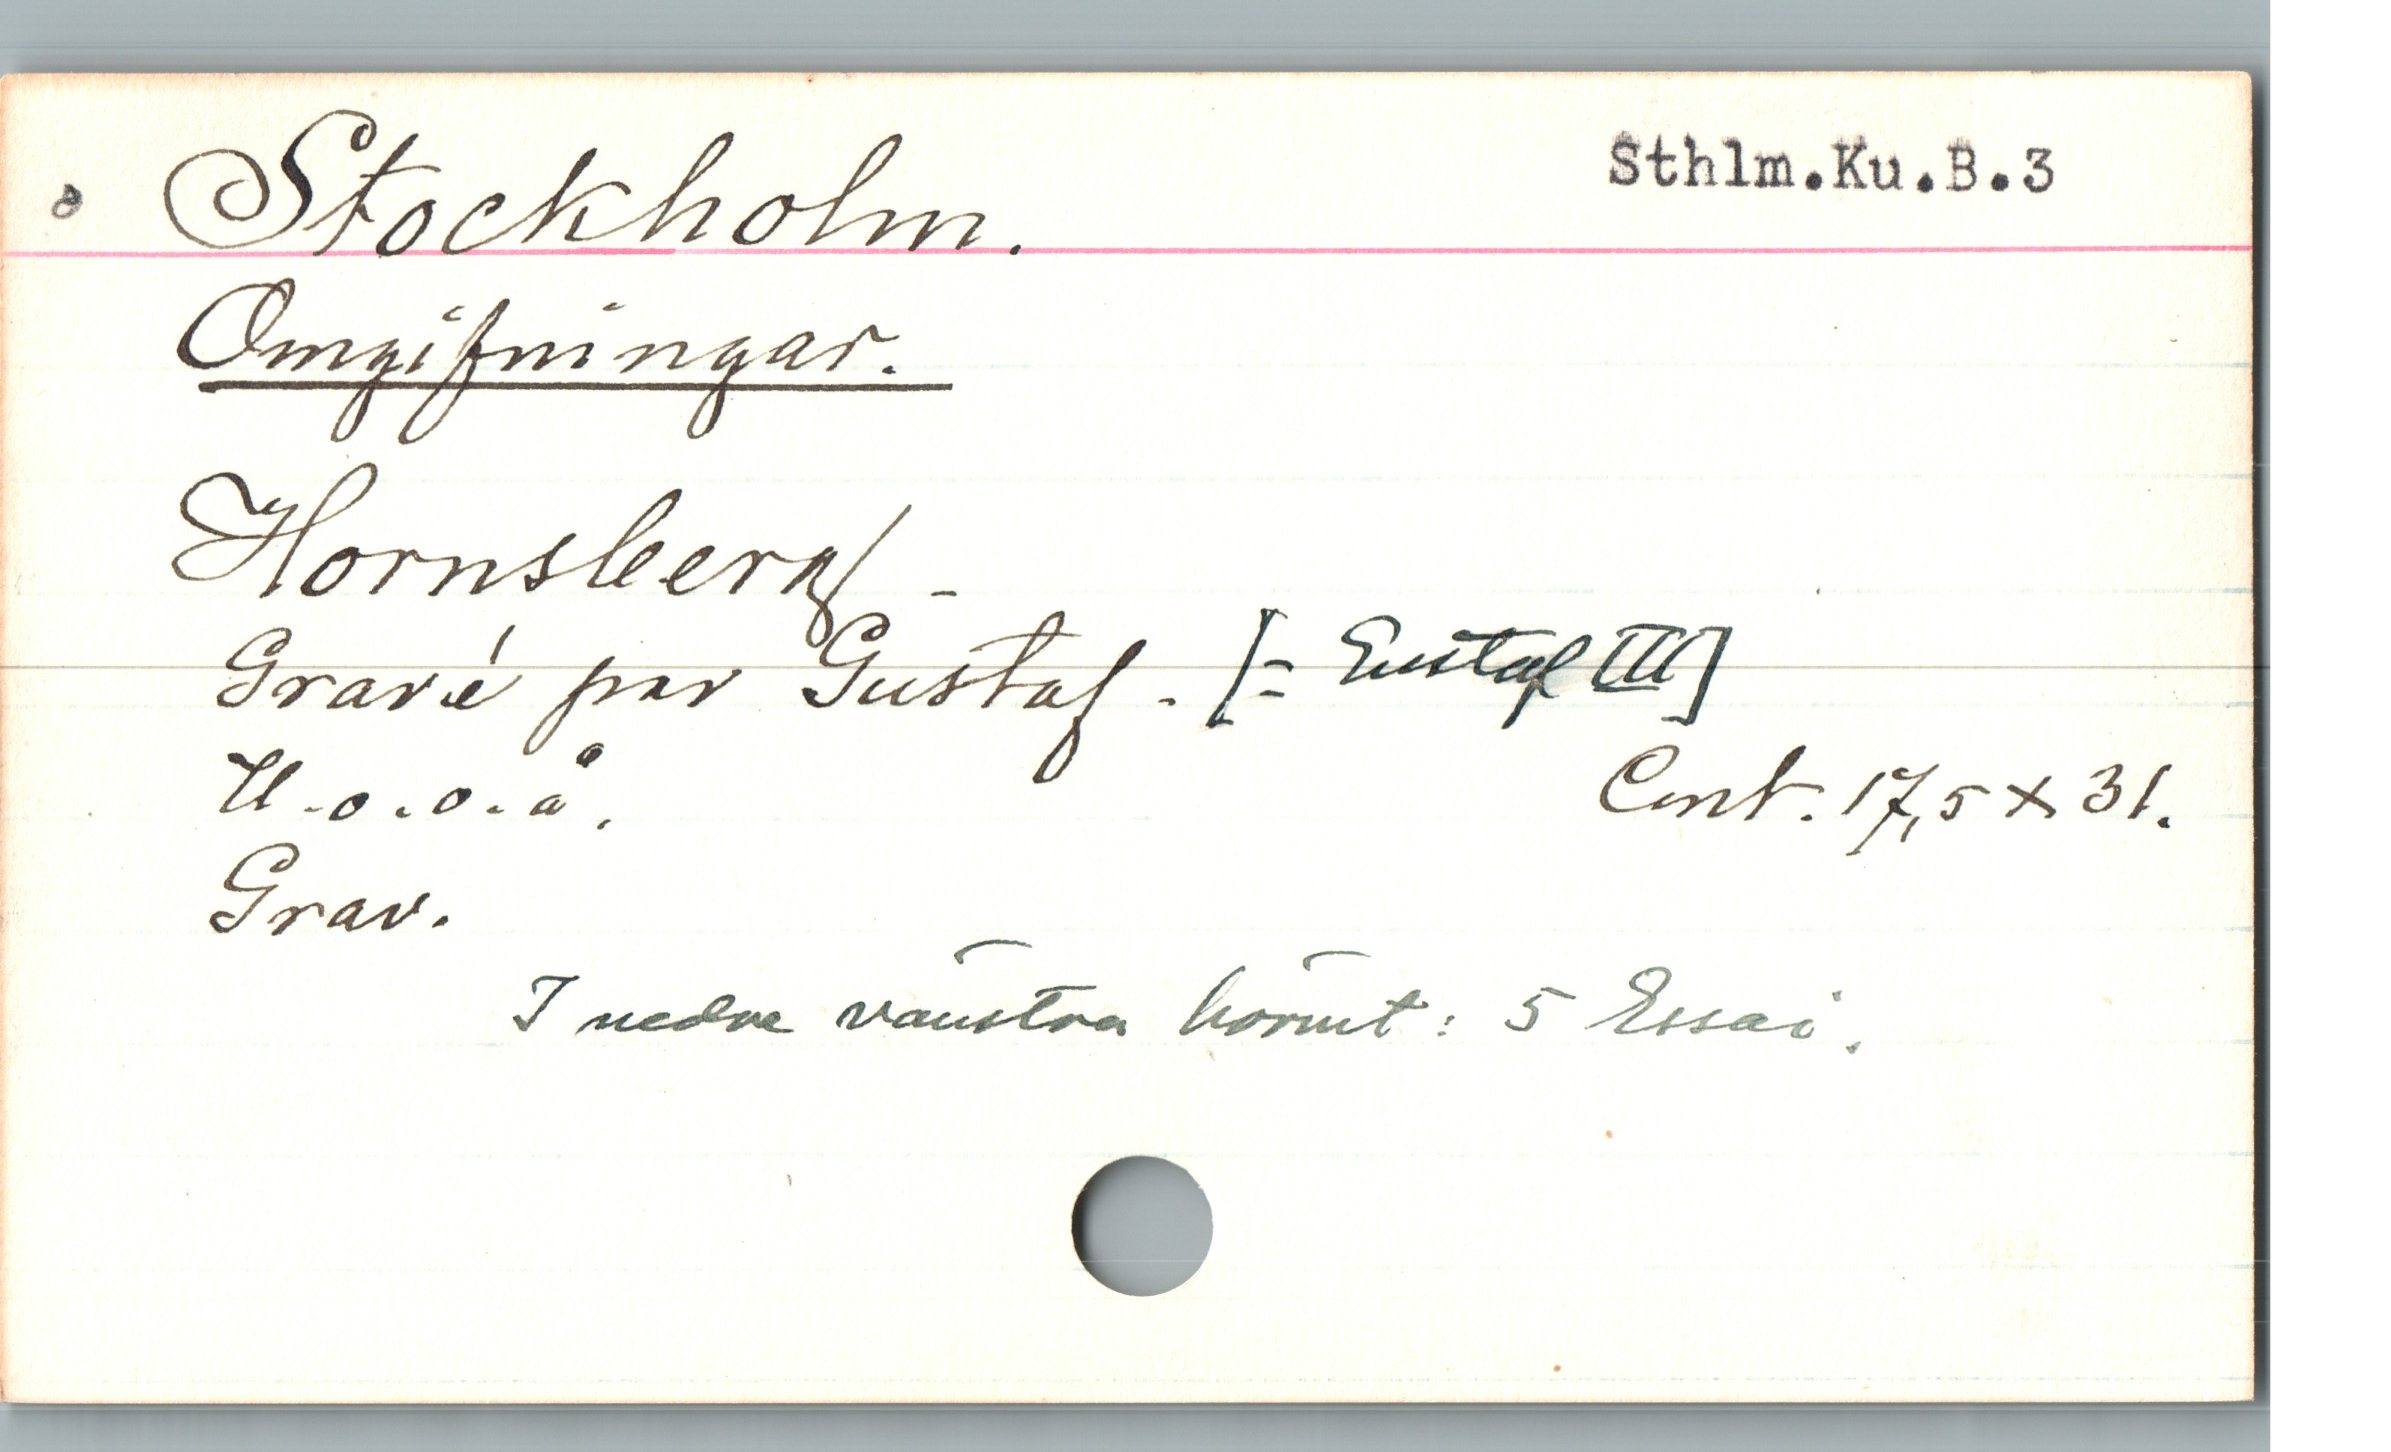 Stockholm.
Sthlm.Ku.B.3
Omgifningar.
Hornsberg -
Gravé par Gustaf. [= Gustaf III]
U.o.o.å.
Cent. 17,5 x 31.
Grav.
I nedre vänstra hörnet: 5 Essai.